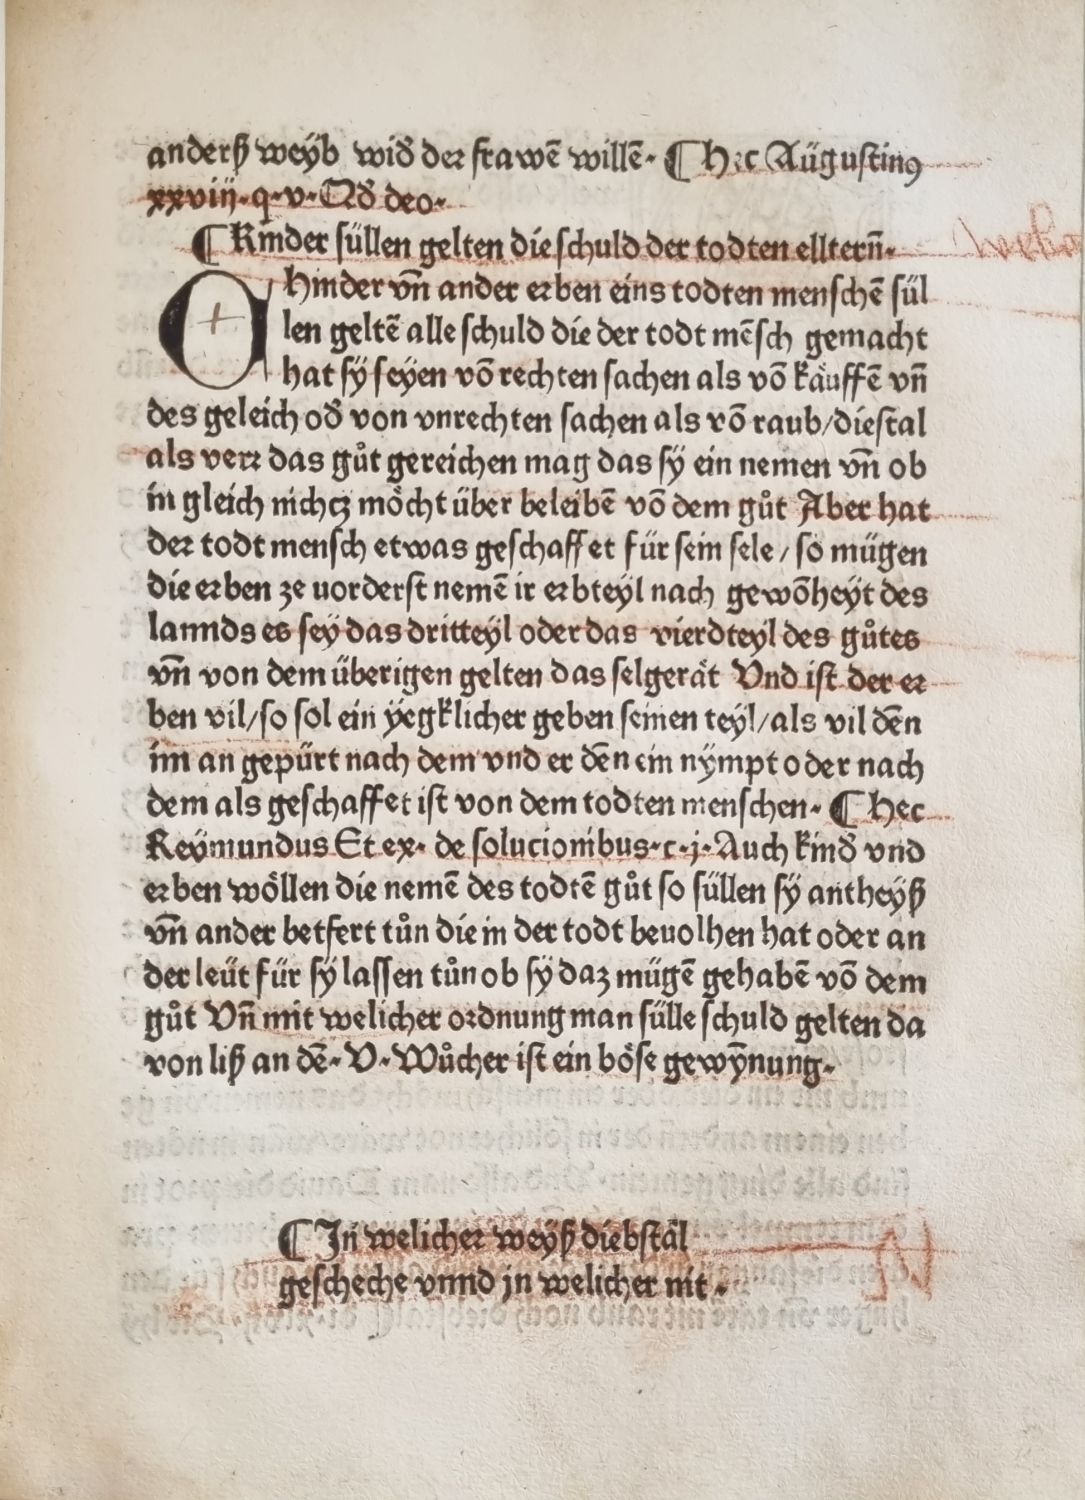 anderß weyb wid̄ der frawē willē· ¶ Hec Augustinꝯ
xxviij·q·v·Qd̄ deo·
¶ Kinder süllen gelten die schuld der todten elltern̄·
Ohinder vn̄ ander erben eins todten menschē sül
len geltē alle schuld die der todt mēsch gemacht
hat sÿ seÿen vō rechten sachen als vō kaͤuffē vn̄
des geleich od̄ von vnrechten sachen als vō raub/diestal
als verr das guͦt gereichen mag das sÿ ein nemen vn̄ ob
in gleich nichcz moͤcht über beleibē vō dem guͦt Aber hat
der todt mensch etwas geschaffet für sein sele/ so mügen
die erben ze uorderst nemē ir erbteyl nach gewōheÿt des
lannds es seÿ das dritteyl oder das vierdteyl des guͦtes
vn̄ von dem überigen gelten das selgeraͤt Vnd ist der er
ben vil/so sol ein ÿegklicher geben seinen teyl/als vil dēn
im an gepürt nach dem vnd er dēn ein nÿmpt oder nach
dem als geschaffet ist von dem todten menschen· ¶ Hec
Reÿmundus Et ex· de solucionibus·c·j·Auch kind̄ vnd
erben woͤllen die nemē des todtē guͦt so süllen sÿ antheÿß
vn̄ ander betfert tuͦn die in der todt beuolhen hat oder an
der leüt für sÿ lassen tuͦn ob sÿ daz mügē gehabē vō dem
guͦt Vn̄ mit welicher ordnung man sülle schuld gelten da
von liß an dē·V·Wuͦcher ist ein boͤse gewÿnung·
¶ Jn welicher weÿß diebstāl
gescheche vnnd jn welicher nit·